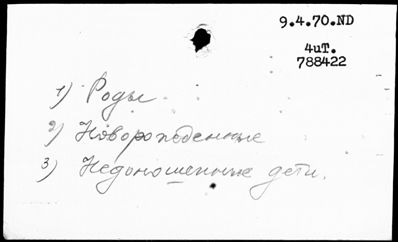 9.4.70.ND
4иТ.
788422
1) Роды
2) Новорожденные
3) Недоношенные дети.